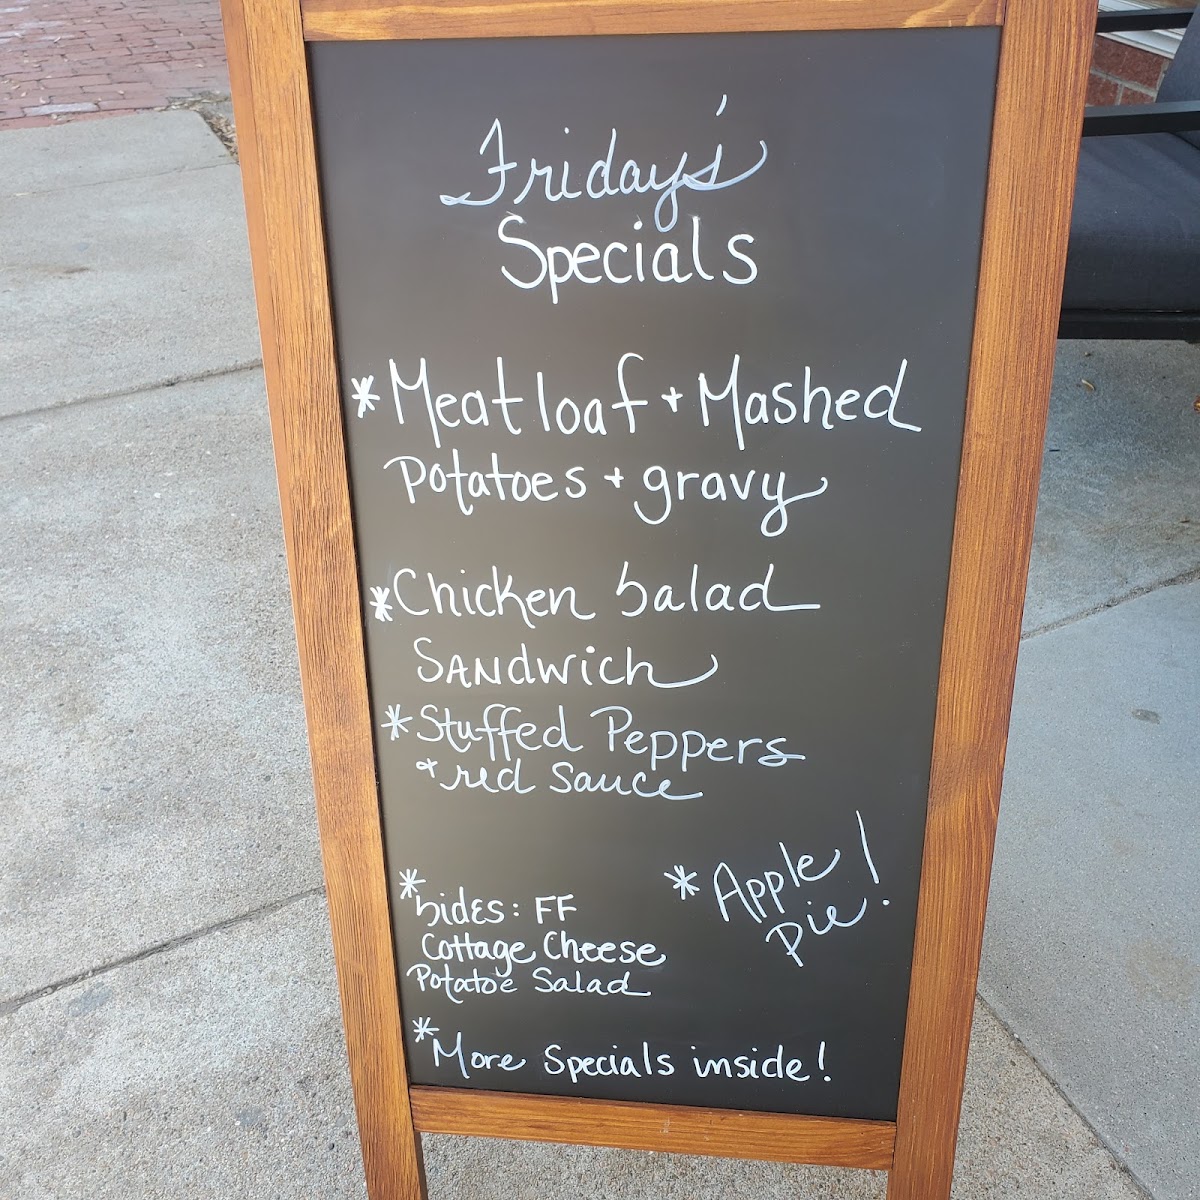 Friday's
Specials
*Meatloaf + Mashed
Potatoes + gravy
*Chicken Salad
SANDWich
*Stuffed Peppers
+ red Sauce
*Sides: FF
Cottage Cheese
Potatoe Salad
*Apple
Pie!
*More Specials inside!